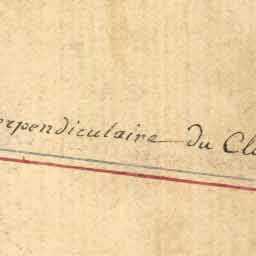 erpendiculaire du Clo